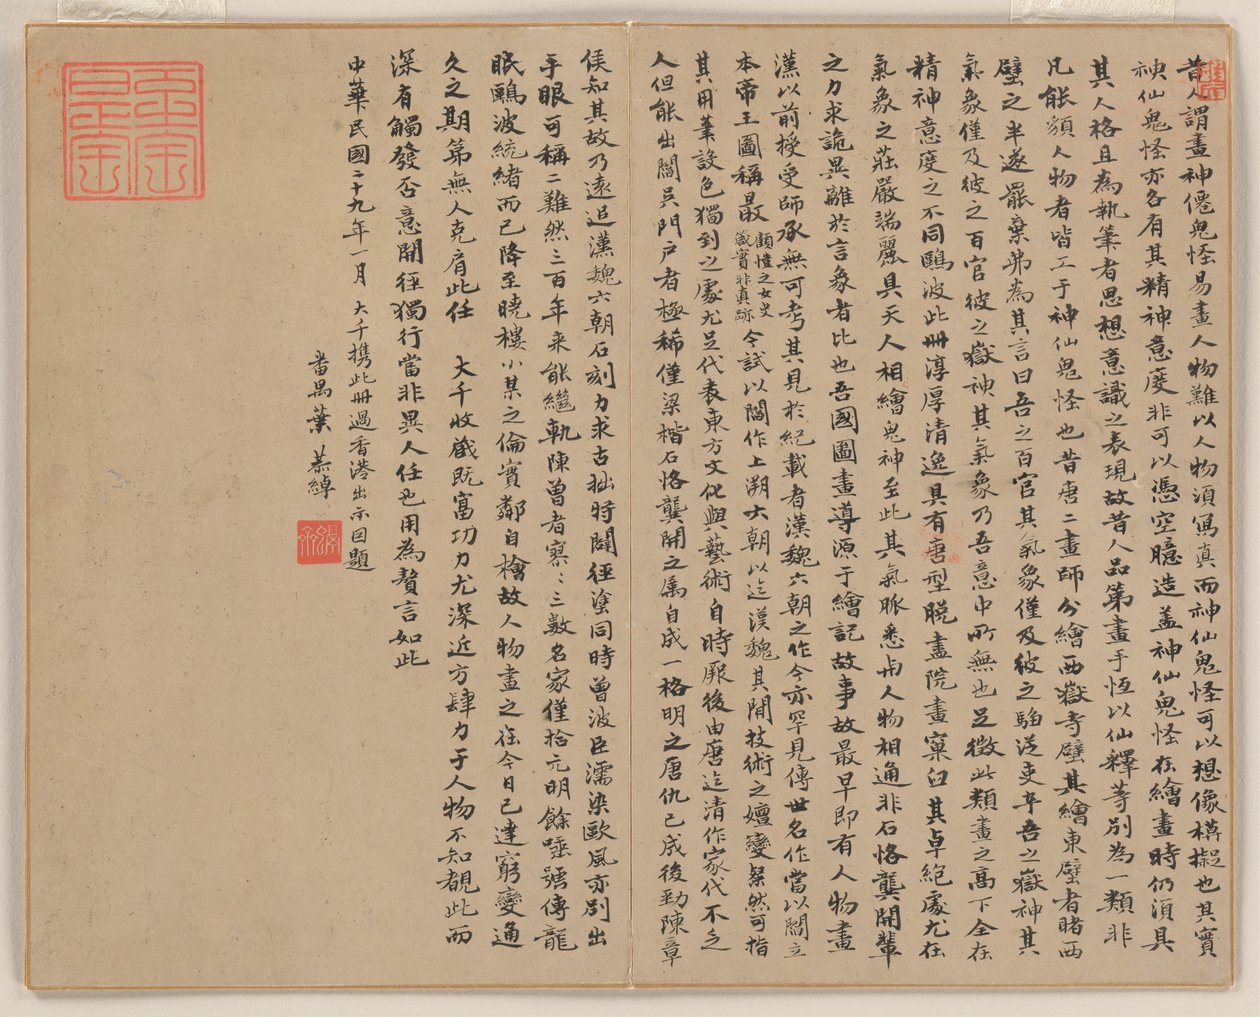 昔人謂畫神僊鬼怪易畫人物難以人物須寫真而神仙鬼怪可以想像模擬也其實
神仙鬼怪亦各有其精神意度非可以憑空臆造蓋神仙鬼怪在繪畫時仍須具
其人格且為執筆者思想意識之表現故昔人品第畫手恆以仙釋等別為一類非
凡能貌人物者皆工于神仙鬼怪也昔唐二畫師分繪西嶽寺壁其繪東壁者睹西
壁之半遂罷棄弗為其言曰吾之百官其氣象僅及彼之騶從吏卒吾之嶽神其
氣象僅及彼之百官彼之嶽神其氣象乃吾意中所無也足徵此類畫之高下全在
精神意度之不同鷗波此冊淳厚清逸具有唐型脫盡院畫窠臼其卓絕處尤在
氣象之莊嚴端麗具天人相繪鬼神至此其氣脈悉與人物相通非石恪龔開輩
之力求詭異離於言象者比也吾國圖畫導源于繪記故事故最早即有人物畫
漢以前授受師承無可考其見於紀載者漢魏六朝之作今亦罕見傳世名作當以閻立
本帝王圖稱最顧愷之女史箴實非真跡今試以閻作上溯六朝以迄漢魏其間技術之嬗變粲然可指
其用筆設色獨到之處尤足代表東方文化與藝術自時厥後由唐迄清作家代不乏
人但能出閻吳門戶者極稀僅梁楷石恪龔開之屬自成一格明之唐仇已成後勁陳章
侯知其故乃遠追漢魏六朝石刻力求古拙時闢徑塗同時曾波臣濡染歐風亦別出
手眼可稱二難然三百年來能繼軌陳曾者寥〻三數名家僅拾元明餘唾號傳龍
眠鷗波統緒而已降至曉樓小某之倫實鄶自檜故人物畫之在今日已達窮變通
久之期第無人克肩此任 大千收藏既富功力尤深近方肆力于人物不知覩此而
深有觸發否意開徑獨行當非異人任也用為贅言如此
中華民國二十九年一月 大千攜此冊過香港出示因題
番禺葉恭綽